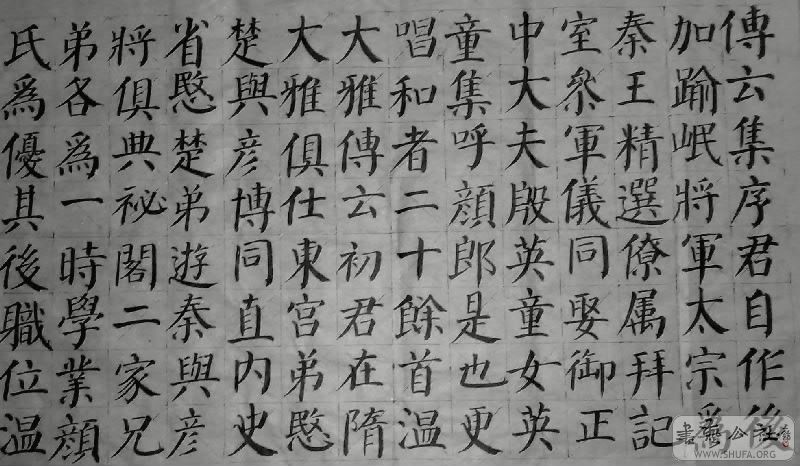 傳云集序君自作後
加踰岷將軍太宗爲
秦王精選僚属拜記
室叅軍儀同娶御正
中大夫殷英童女英
童集呼顔郎是也更
唱和者二十餘首温
大雅傳云初君在隋
大雅俱仕東宫弟愍
楚與彦博同直内史
省愍楚弟遊秦與彦
將俱典祕閣二家兄
弟各爲一時學業顔
氏爲優其後職位温
書藝公社
WWW.SHUFA.ORG